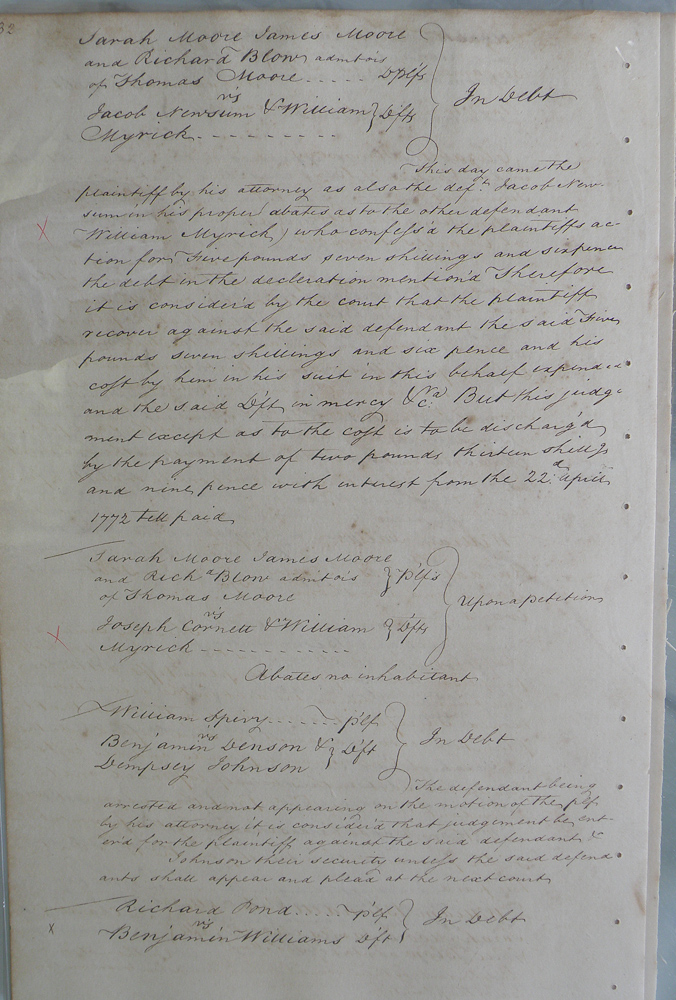 32
Sarah Moore James Moore
and Richard Blow admtois
of Thomas Moore ..... Dplfs
vs
Jacob Newsum & William } Dfts
Myrick - - - - - - - - -
In Debt
This day came the
plaintiff by his attorney as also the deft. Jacob New-
sum in his proper (abates as to the other defendant
William Myrick) who confess'd the plaintiffs ac-
tion for Five pounds seven shillings and sixpence
the debt in the decleration mention'd Therefore
it is consider'd by the court that the plaintiff
recover against the said defendant the said Five
pounds seven shillings and six pence and his
cost by him in his suit in this behalf expended
and the said Dft in mercy &c. But this judg-
ment except as to the cost is to be discharg'd
by the payment of two pounds thirteen shillgs
and nine pence with interest from the 22d. April
1772 till paid
Sarah Moore James Moore
and Richd Blow admtois } plfs
of Thomas Moore
vs
Joseph Cornett & William } Dfts
Myrick - - - - - - - - - -
Upon a petition
Abates no inhabitant
William Spivy ..... plf
vs
Benjamin Denson & } Dft
Dempsey Johnson
In Debt
The defendant being
arrested and not appearing on the motion of the plf
by his attorney it is consider'd that judgement be ent-
er'd for the plaintiff against the said defendant &
Johnson their security unless the said defend-
ants shall appear and plead at the next court
Richard Pond ...... plf
vs
Benjamin Williams Dft
In Debt